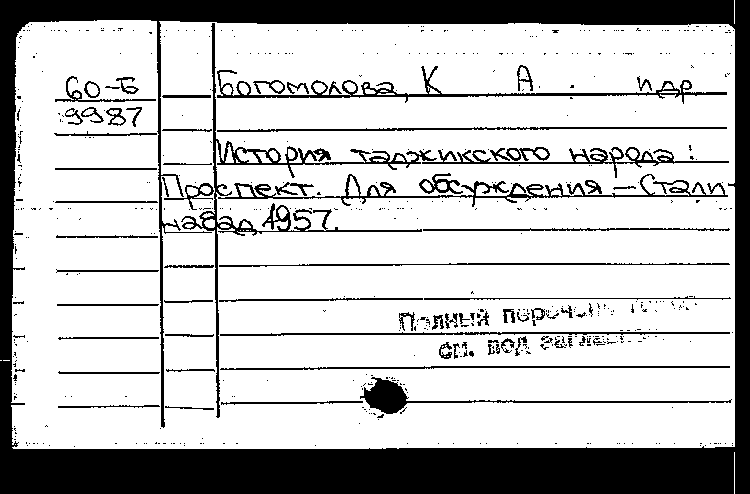 60-Б
9987
Богомолова, К А. и др
История таджикского народа:
Проспект. Для обсуждения - Стали-
набад, 1957.
Полный перечень
см. под